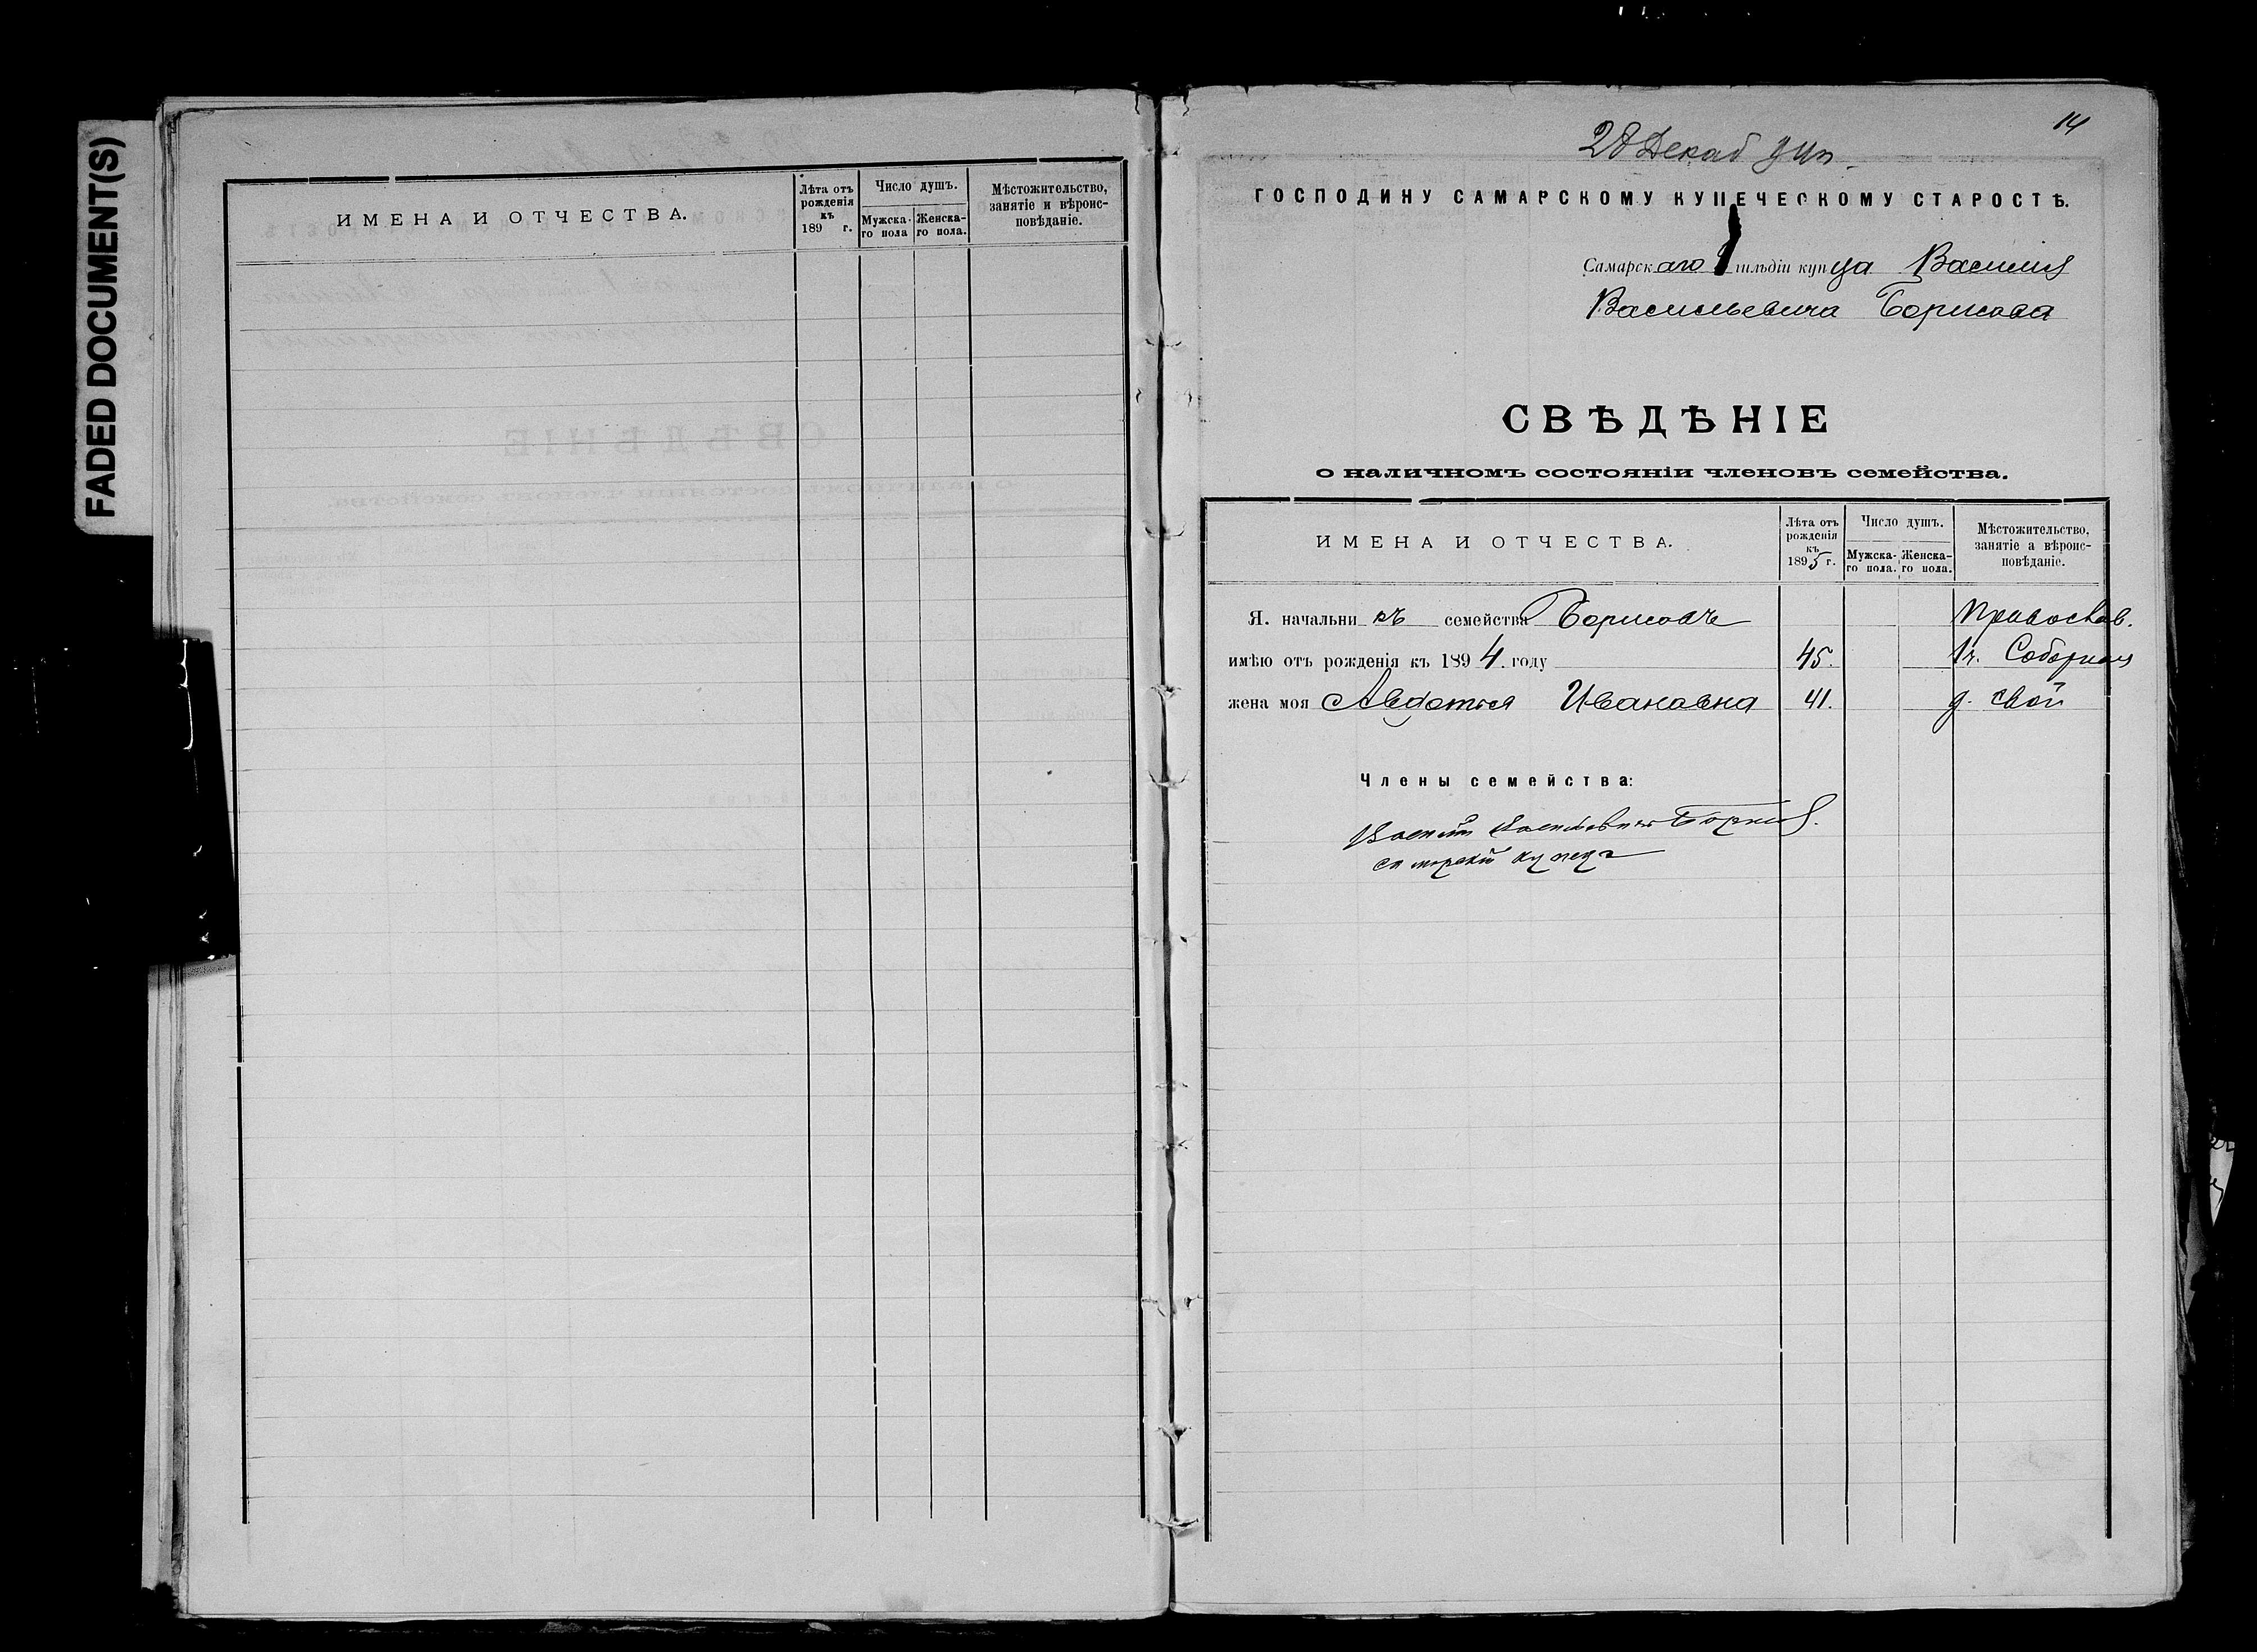 FADED DOCUMENT(S)
ИМЕНА И ОТЧЕСТВА.
Лѣта отъ
рожденія
къ
189 г.
Число душъ.
Мужска-
го пола
Женска-
го пола.
Мѣстожительство,
занятіе и вѣроис-
повѣданіе.
14
28 Декаб 94 г.
ГОСПОДИНУ САМАРСКОМУ КУПЕЧЕСКОМУ СТАРОСТѢ.
Самарскаго 1 гильдіи купца Василія
Васильевича Борисова
СВѢДѢНІЕ
о наличномъ состояніи членовъ семейства.
ИМЕНА И ОТЧЕСТВА.
Лѣта отъ
рожденія
къ
1895 г.
Число душъ.
Мужска-
го пола.
Женска-
го пола.
Мѣстожительство,
занятіе а вѣроис-
повѣданіе.
Я. начальникъ семейства Борисовъ Православ.
имѣю отъ рожденія къ 1894. году 45. Соборная
жена моя Авдотья Ивановна 41. д. свой
Члены семейства:
Василій Васильевичъ Борисов.
самарскій купецъ